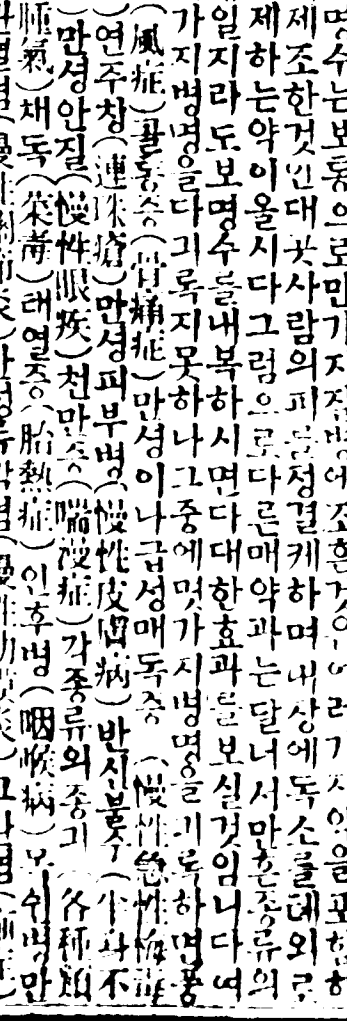 명수는보통으로만기지질병에조흔것이
제조한것인대곳사람의피를정결케하며내상에독소를톄외로
제하는약이올시다그럼으로다른매약과는달너서만흔종류의
일지라도보명수를내복하시면다대한효과를보실것임니다여
가지병명을다긔록지못하나그중에몃가지병명을긔록하면풍
(風症)골통증(骨痛症)만셩이나급성매독증(慢性急性梅毒症
)연주창(連珠瘡)만셩피부병(慢性皮膚病)반신불수(半身不
)만셩안질(慢性眼疾)천만증(喘滿症)각종류의종긔(各種類
腫氣)채독(菜毒)태열증(胎熱症)인후병(咽喉病)